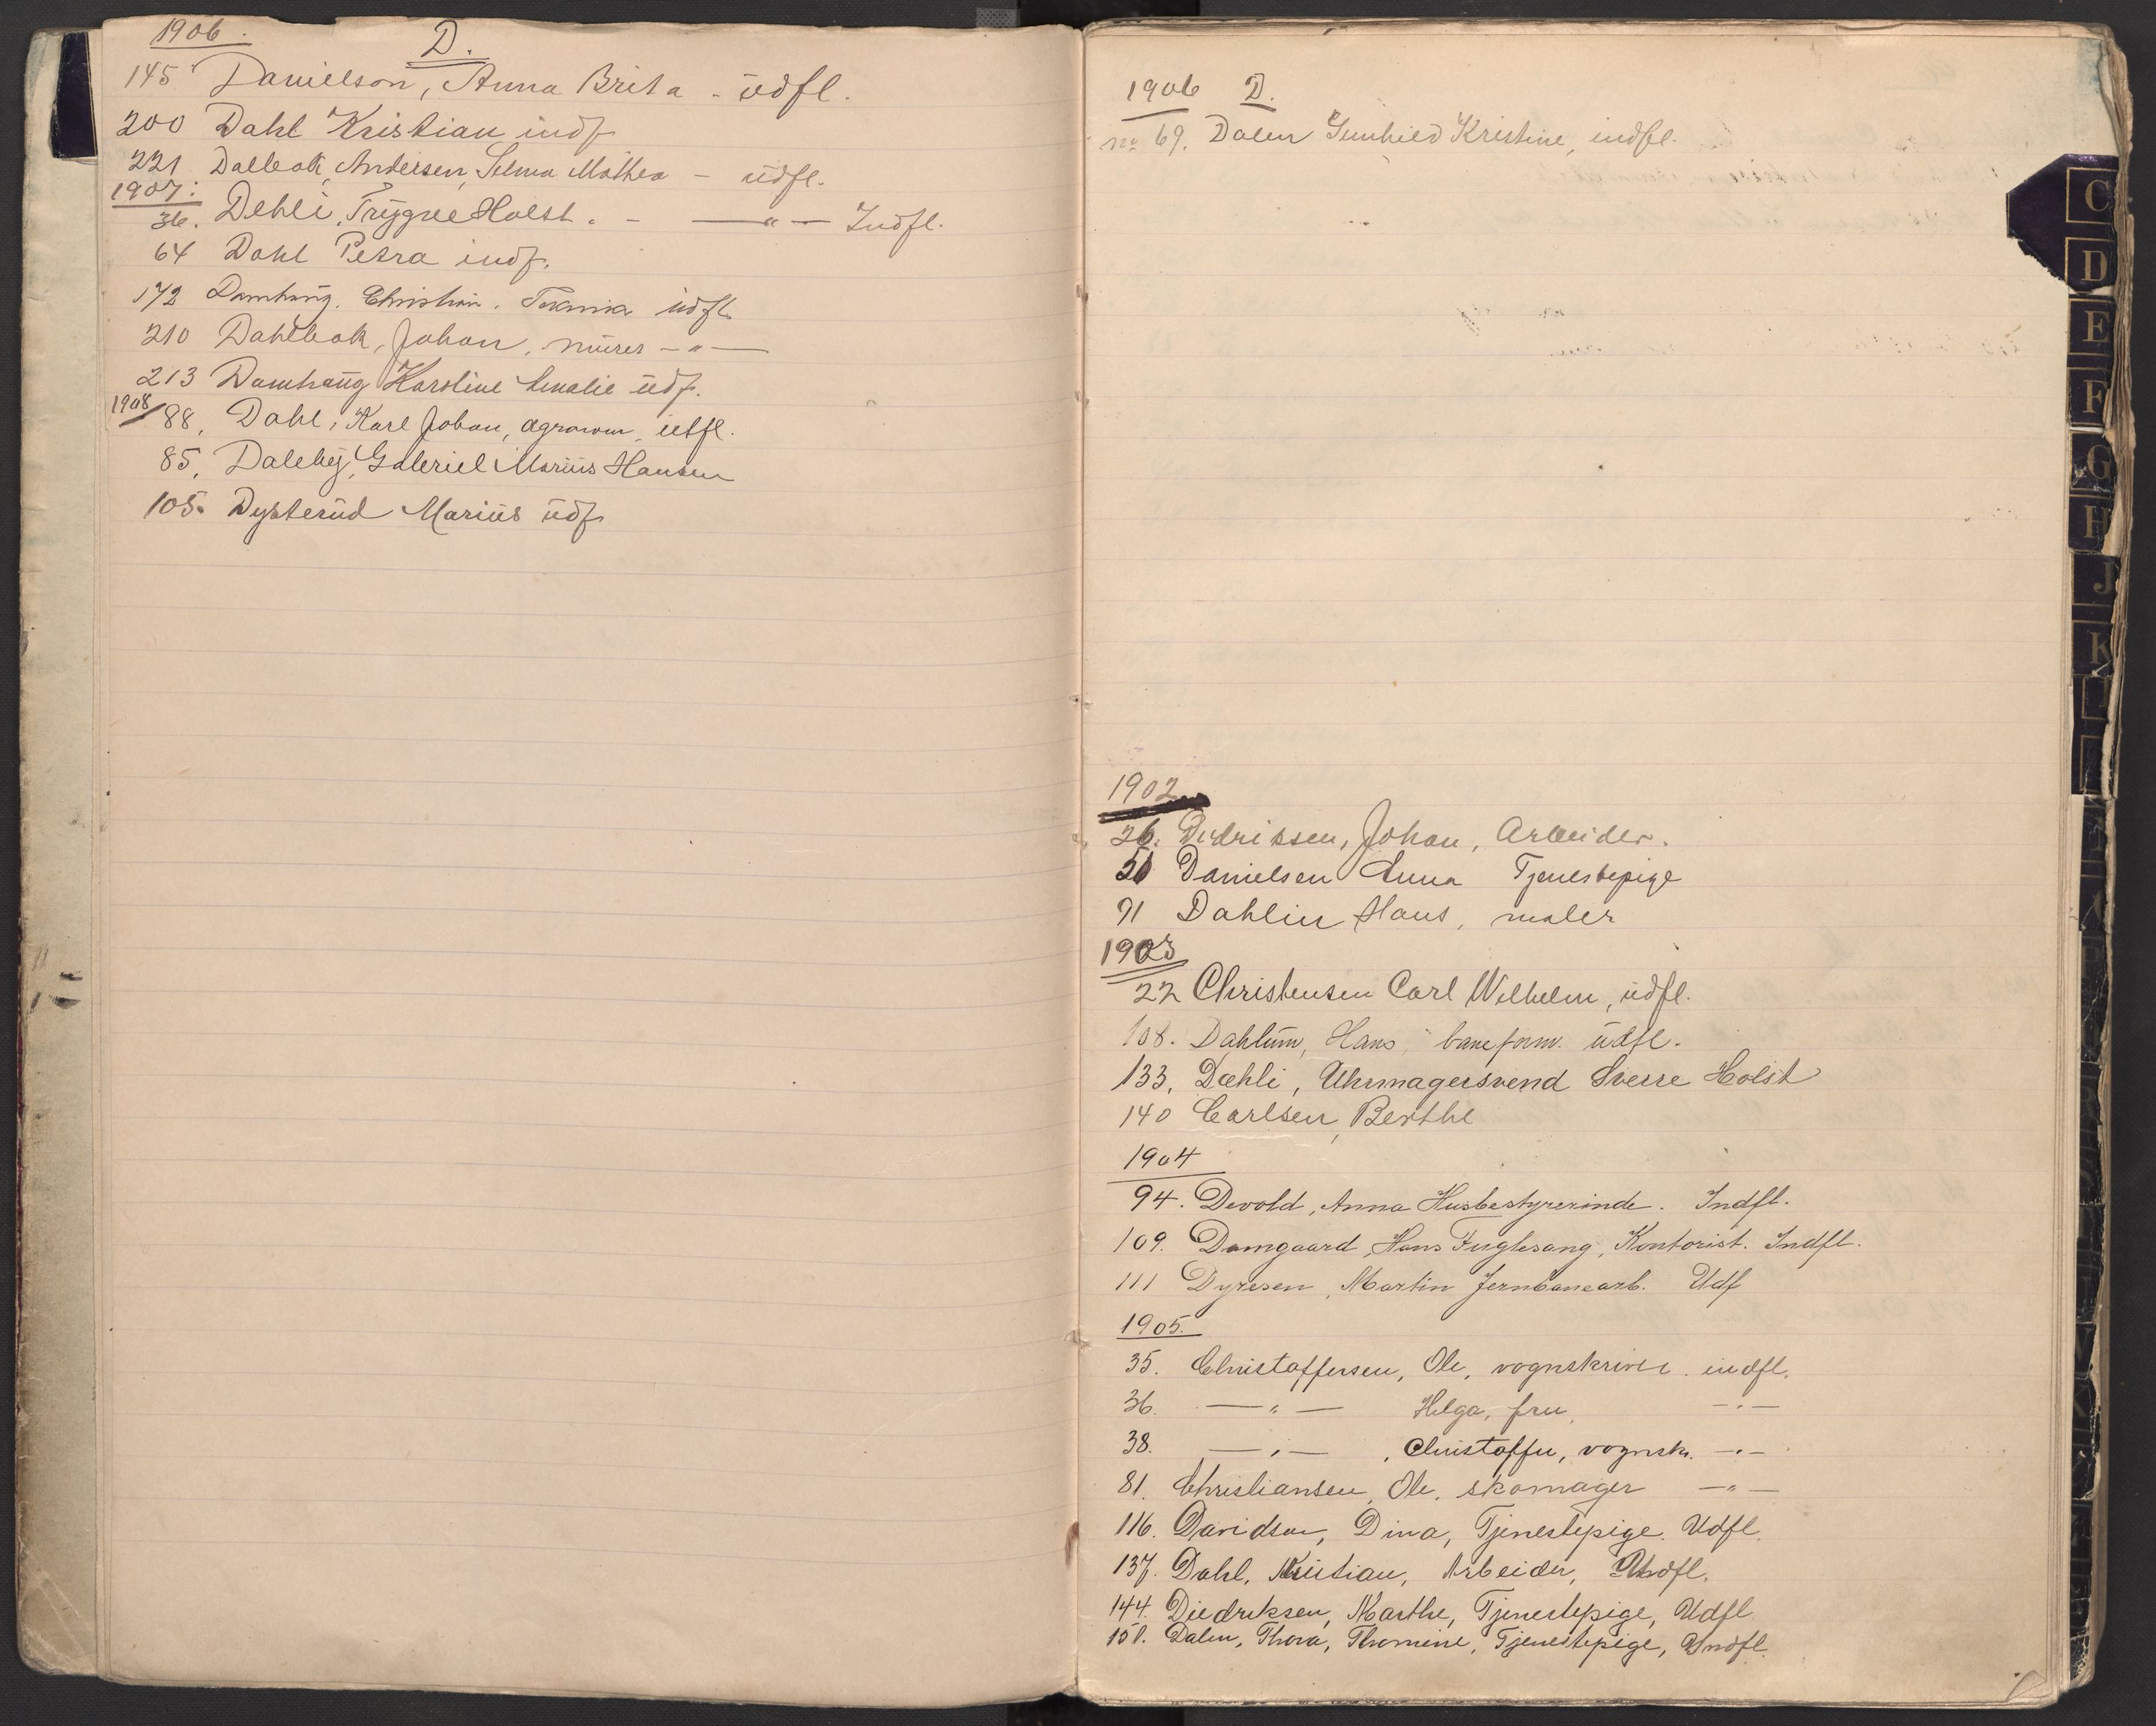 1906. D.
145 Danielson, Anna Brita - udfl.
200 Dahl Kristian indf
221 Dalbak, Andersen, Selma Mathea - udfl.
1907:
36. Dehli, Trygve Holst. - — " — Indfl.
64 Dahl Petra indf.
172 Damhaug. Christian. udfl
210 Dahlbak, Johan, murer — " —
213 Damhaug Karoline Amalie udf.
1908/ 88, Dahl, Karl Johan, agronom, utfl.
85, Daleby, Gabriel Marius Hansen
105. Dysterud Marius udf
1906 D.
no 69. Dalen Gunhild Kristine, indfl.
1902
26. Didrissen, Johan, Arbeider.
51 Danielsen Anna Tjenestepige
91 Dahlin Hans, maler
1903
22 Christensen Carl Wilhelm, udfl.
108. Dahlum, Hans, baneform. udfl.
133, Dæhli, Uhrmagersvend Sverre Holst
140 Carlsen, Berthe
1904
94. Devold, Anna Husbestyrerinde. Indfl.
109. Damgaard, Hans Fuglesang, Kontorist. Indfl.
111 Dyresen, Martin Jernbanearb. Udf
1905.
35. Christoffersen, Ole, vognskriver. indfl.
36. — " — Helga, fru, — " —
38. — " — , Christoffer, vognsk. — " —
81. Christiansen, Ole, skomager — " —
116. Davidson, Dina, Tjenestepige. Udfl.
137. Dahl, Kristian, Arbeider, Undfl.
144. Diedriksen, Marthe, Tjenestepige, Udfl.
151. Dalen, Thora, Thomine, Tjenestepige, Indfl.
C
D
E
F
G
H
J
K